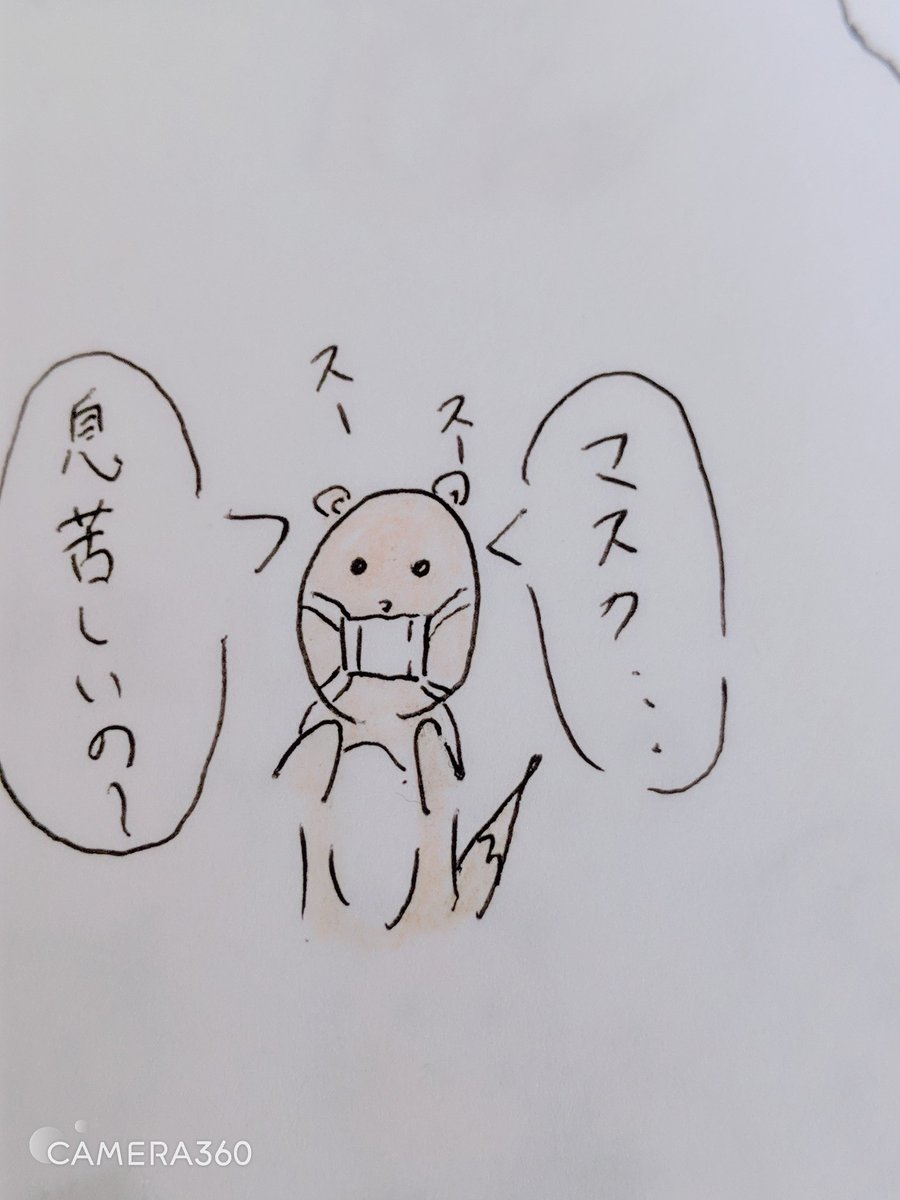 マスク...
スー
スー
息苦しいの〜
CAMERA360